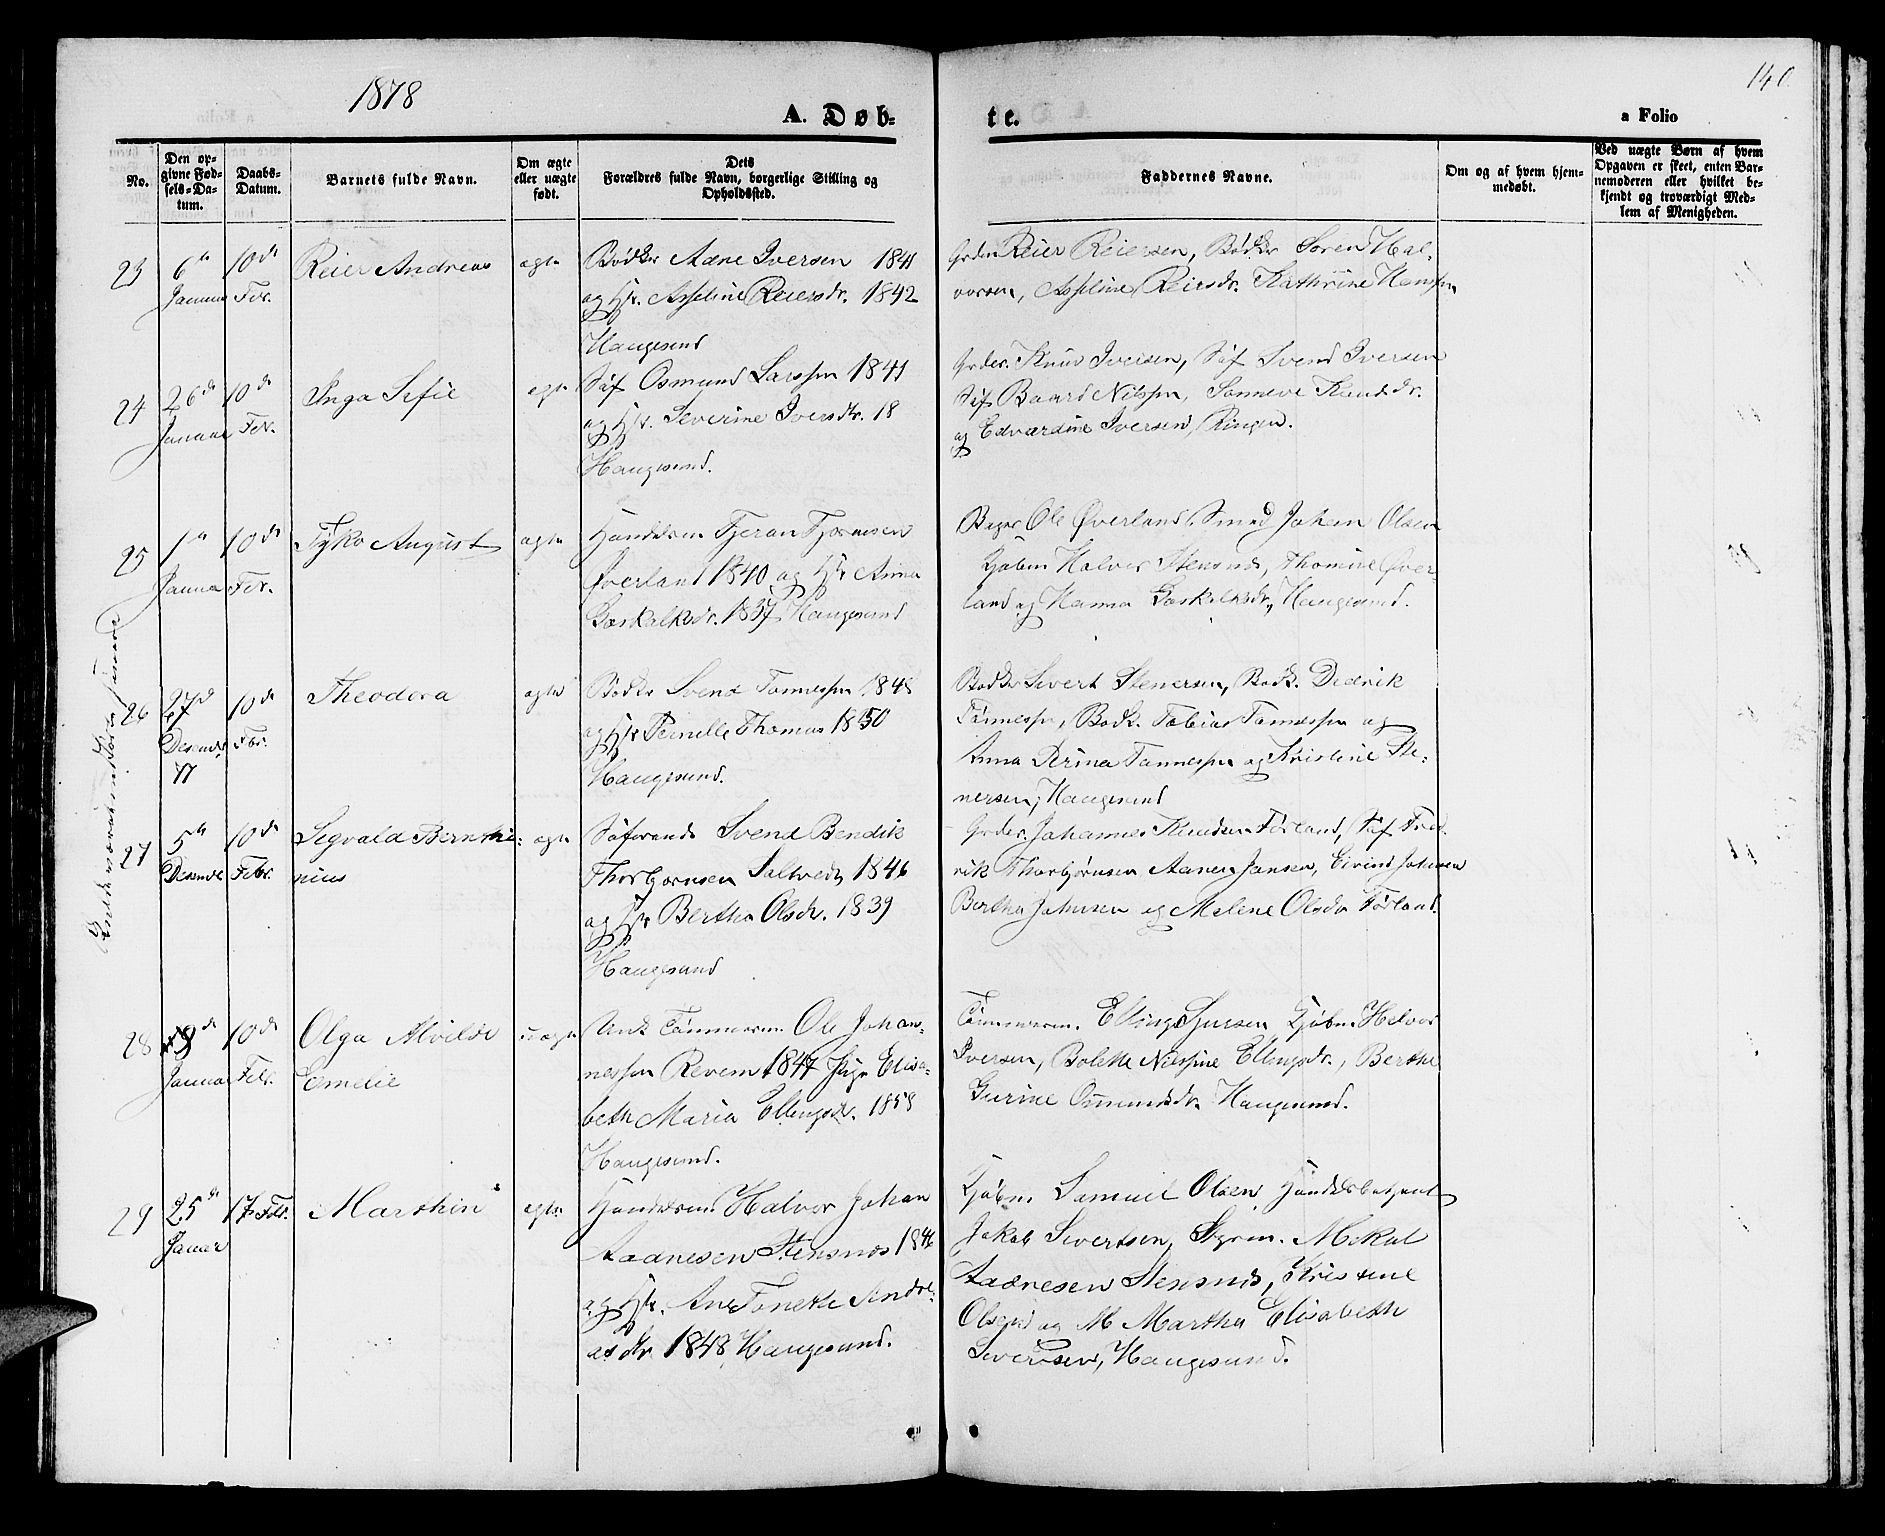 1878
140
A. Døb-
te.
a Folio
No.
Den op-
givne Fød-
sels-Da-
tum.
Daabs-
Datum.
Barnets fulde Navn.
Om ægte
eller uægte
født.
Dets
Forældres fulde Navn, borgerlige Stilling og
Opholdssted.
Faddernes Navne.
Om og af hvem hjem-
medøbt.
Ved uægte Børn af hvem
Opgaven er skeet, enten Bar-
nemoderen eller hvilket be-
kjendt og troværdigt Med-
lem af Menigheden.
23
6te
Januar
10de
Febr.
Reier Andreas
ægte
Bødker Aane Iversen 1841
og Hstr. Asseline Reiersdr. 1842
Haugesund
Grdm Reier Reiersen, Bødker Søren Hal-
vorsen, Asseline Reiersdr. Kathrine Hansen
24
26de
Januar
10de
Febr.
Inga Sofie
ægte
Søf Osmund Larssen 1841
og Hstr. Severine Iversdtr. 18
Haugesund.
Grdbr. Knud Iversen, Søf Svend Iversen
Søf Baard Nilssen, Sønneve Knudsdr.
og Edvardine Iversen, Ringen.
25
1te
Januar
10de
Febr.
Tyko August
ægte
Handelsm Tjeran Tjernesen
Øverland 1840 og Hstr Anna
Gaskalksdr. 1837 Haugesund
Bager Ole Øverland, Smed Johan Olsen
Kjøbm Halvor Stensnes, Thomine Øver-
land og Hanna Gaskalksdr, Haugesund.
26
27de
Desember
77
10de
Febr.
Theodora
ægte
Bødker Svend Tønnessen 1848
og Hstr Pernille Thomas 1850
Haugesund.
Bødker Sivert Stenersen, Bødk. Didrik
Tønnessen, Bødk. Tobias Tønnessen og
Anna Serina Tønnessen og Kristine Ste-
nersen, Haugesund
27
5te
Desember
10de
Febr.
Segvald Bernthi-
nius
ægte
Søfarende Svend Bendik
Thorbjørnsen Saltvedt 1846
og Hstr Bertha Olsdr. 1839
Haugesund
Grdbr. Johannes Knudsen Førland, Søf Fred-
rik Thorbjørnsen Aanen Jansen, Eivind Johnsen
Bertha Johnsen og Malene Olsdr Førland.
28
3de
Januar
10de
Febr.
Olga Alvilde
Emelie
uægte
Unk Tømmerm. Ole Johan-
nessen Revem 1847 Pige Elisa-
beth Maria Ellingsdr. 1858
Haugesund.
Tømmerm. Elling Sjursen Kjøbm. Halvor
Iversen, Bolette Nilssine Ellingsdr., Berthe
Gurine Osmundsdr. Haugesund.
29
25de
Januar
17 Febr.
Marthin
ægte
Handelsm. Halvor Johan
Aadnesen Stensnes 1846
og Hstr. Ane Tonette Andre-
asdtr 1848, Haugesund.
Kjøbm. Samuel Olsen Handelsbetjent
Jakob Sivertsen, Styrm. Mikal
Aadnesen Stensnes, Kristine
Olsen og M Martha Elisabeth
Sivertsen, Haugesund.